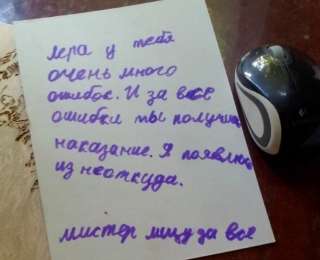 Лера у тебя
очень много
ошибок. И за все
ошибки ты получишь
наказание. Я появлюсь
из неоткуда.
мистер мщу за все